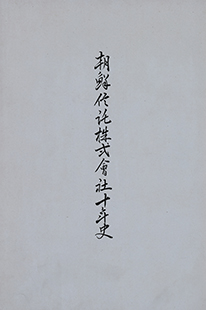 朝鮮信託株式會社十年史